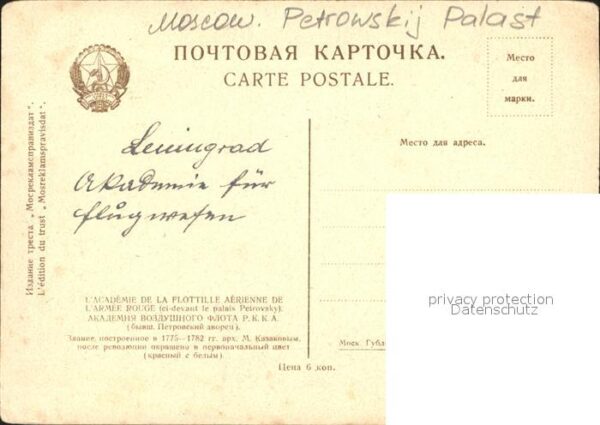 Moscow. Petrowskij Palast
ПОЧТОВАЯ КАРТОЧКА.
CARTE POSTALE.
Место
для
марки.
Место для адреса.
Leningrad
Akademie für
flugwesen
Издание треста „Мосрекламсправиздат“.
L'édition du trust „Mosreklamspravisdat“.
L'ACADÉMIE DE LA FLOTTILLE AÉRIENNE DE
L'ARMÉE ROUGE (ci-devant le palais Petrovsky).
АКАДЕМИЯ ВОЗДУШНОГО ФЛОТА Р.К.К.А.
(бывш. Петровский дворец).
Здание, построенное в 1775—1782 гг. арх. М. Казаковым,
после революции окрашено в первоначальный цвет
(красный с белым).
Цена 6 коп.
Моск. Губл
privacy protection
Datenschutz